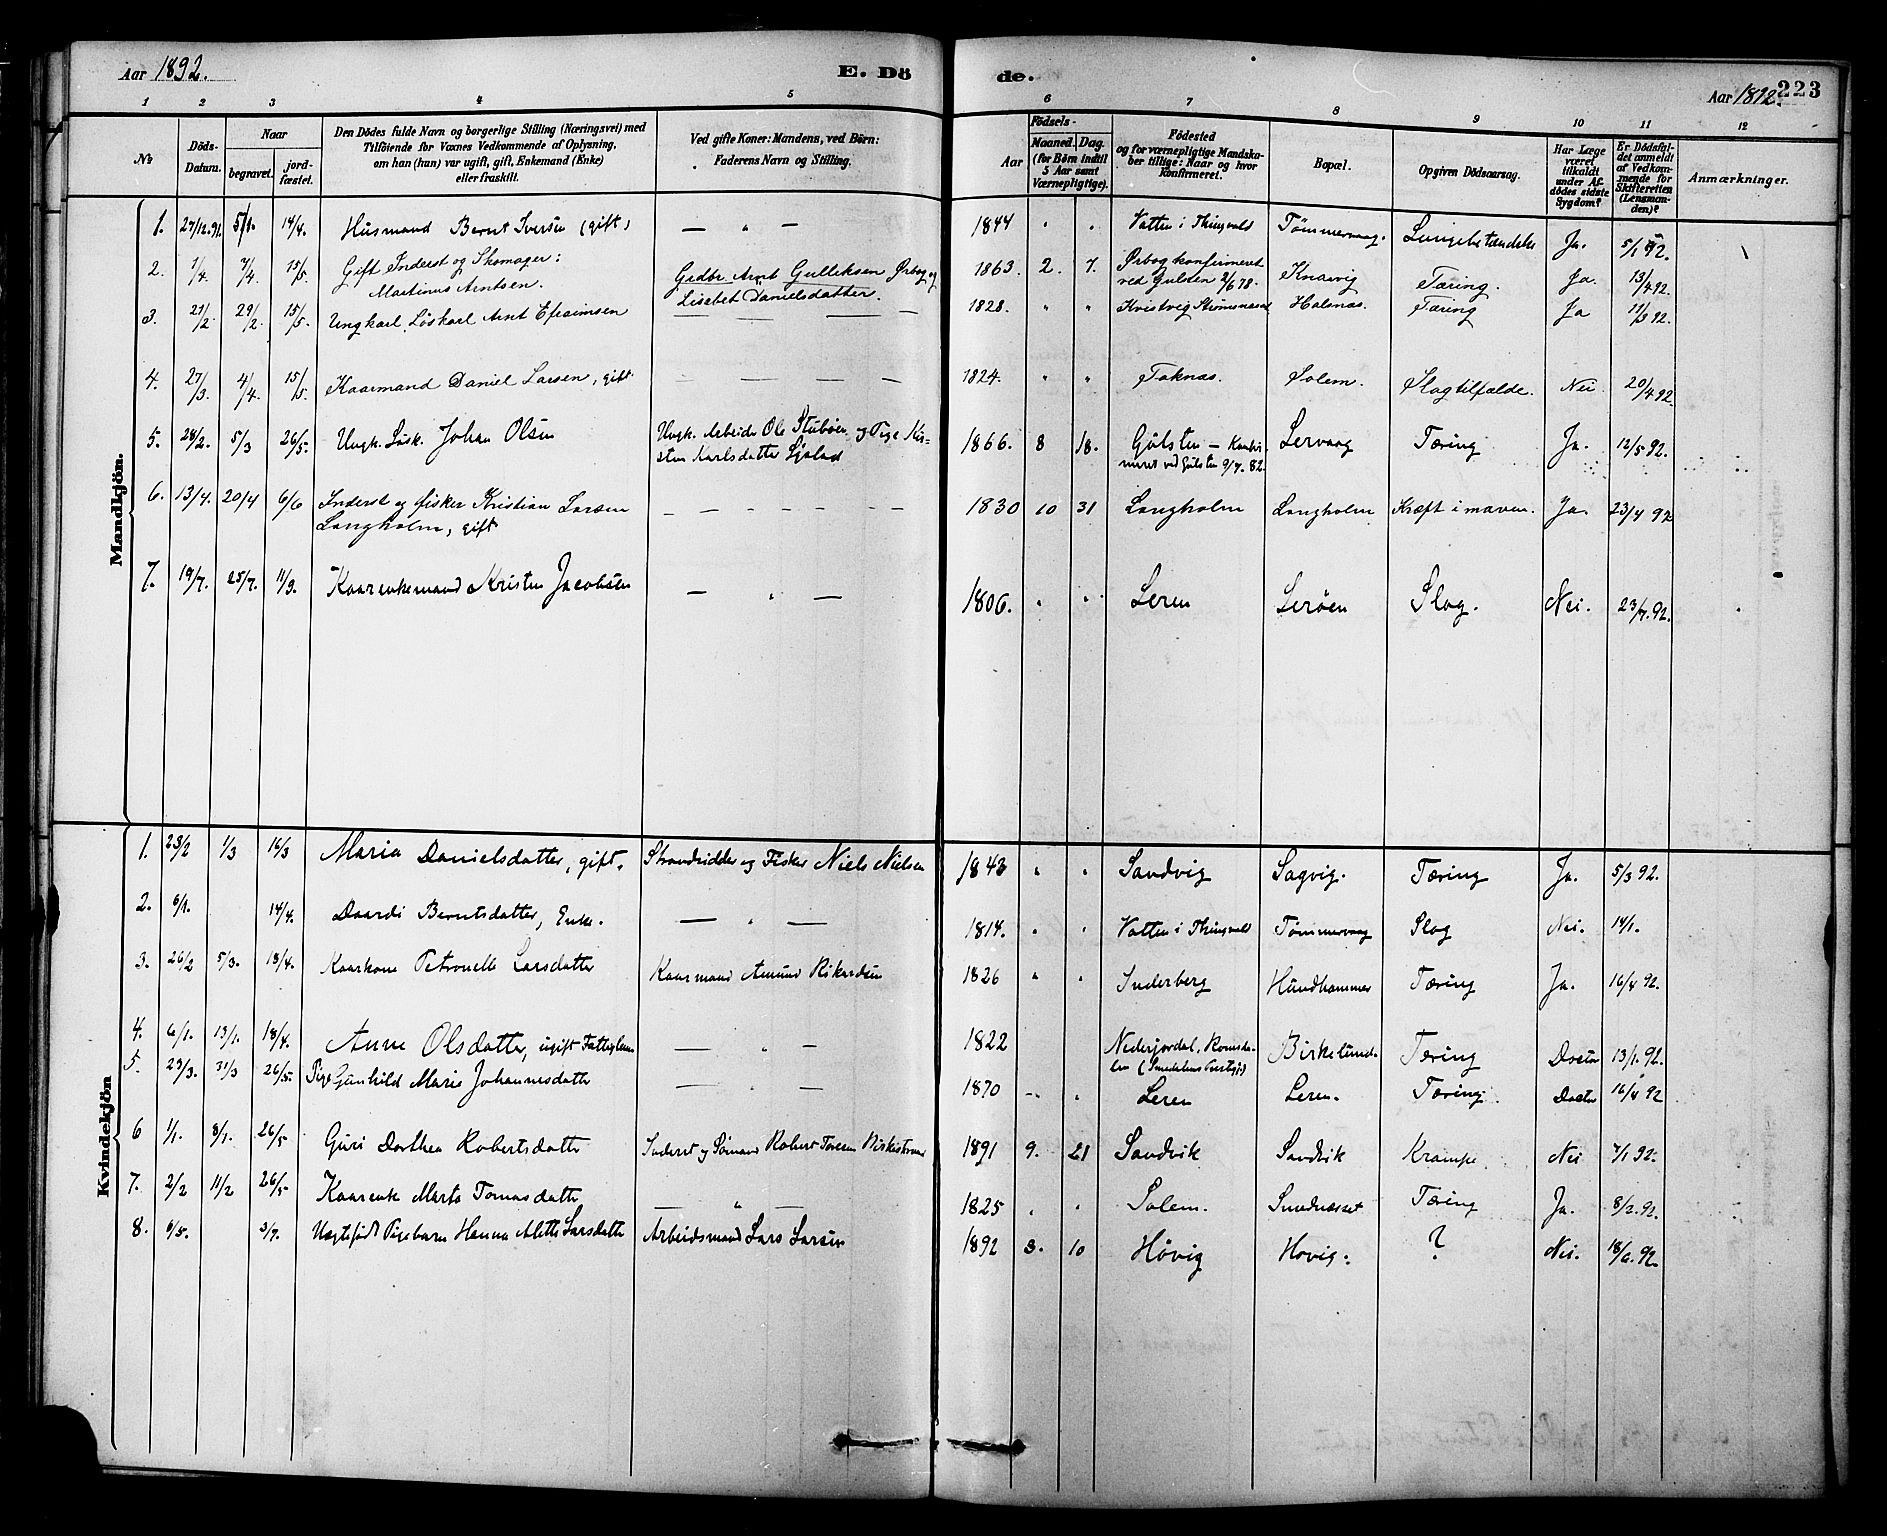 Aar 1892.
E. Dö
de.
Aar 1892.
223
1 2 3 4 5 6 7 8 9 10 11 12
No
Döds-
Datum.
Naar
begravet.
jord-
fæstet.
Den Dödes fulde Navn og borgerlige Stilling (Næringsvei) med
Tilföiende for Voxnes Vedkommende af Oplysning,
om han (hun) var ugift, gift, Enkemand (Enke)
eller fraskilt.
Ved gifte Koner: Mandens, ved Börn:
Faderens Navn og Stilling.
Födsels-
Aar
Maaned.
Dag.
(for Börn indtil
5 Aar samt
Værnepligtige).
Födested
og for værnepligtige Mandska-
ber tillige: Naar og hvor
konfirmeret.
Bopæl.
Opgiven Dödsaarsag.
Har Læge
været
tilkaldt
under Af-
dödes sidste
Sygdom?
Er Dödsfal-
det anmeldt
af Vedkom-
mende for
Skifteretten
(Lensman-
den)?
Anmærkninger.
Mandkjön.
1. 27/12.91. 5/1. 14/4. Husmand Bernt Iversen (gift) — " — 1844 " " Vatten i Thingvold Tømmervaag. Lungebetændelse Ja. 5/1 92.
2. 1/4. 7/4. 15/5. Gift Inderst og Skomager: Gedbr. Arnt Gulliksen Ørbog og 1863. 2. 7. Ørbog konfirmeret Knarvig Tæring. Ja. 13/4 92.
Martinus Arntsen. Lisebet Danielsdatter. ved Gulsten 2/6 78.
3. 21/2. 29/2. 15/5. Ungkarl, Löskarl Arnt Efraimsen — — — — 1828. " " Kvistvig Strømsnæss Halsnæs. Tæring Ja 11/3 92.
4. 27/3. 4/4. 15/5. Kaarmand Daniel Larsen, gift — — — — 1824. " " Toknæs. Solem. Slagtilfælde. Nei 20/4 92.
5. 28/2. 5/3 26/5. Ungk. Lösk. Johan Olsen Ungk. Arbeider Ole Stubøen og Pige Kir- 1866. 8 18. Gulsten — Konfir- Lervaag Tæring Ja. 12/5 92.
sten Karlsdatter meret ved Gulsten 9/7. 82.
6. 13/4. 20/4 6/6 Inderst og fisker Kristian Larsen — — — — — — 1830 10 31 Langholm Langholm Kræft i maven. Ja 23/4 92
Langholm, gift
7. 19/7. 25/7. 11/9. Kaarenkemand Kristen Jacobsen — " — 1806. " " Leren Lerøen Slag. Nei. 23/7. 92.
Kvindekjön
1. 23/2 1/3 16/3 Maria Danielsdatter, gift. Strandsidder og Fisker Niels Nielsen 1843 " " Sandvig Sagvig. Tæring Ja. 5/3 92.
2. 6/1. 14/4. Daardi Berntsdatter, Enke. — " — 1814. " " Vatten i Thingvold Tømmervaag Slag Nei. 14/1.
3. 26/2 5/3. 18/4. Kaarkone Petronelle Larsdatter Kaarmand Amund Rikardsen 1826 " " Inderberg Hundhammer Tæring Ja. 16/4 92.
4. 6/1. 13/1. 18/4. Anne Olsdatter, ugift Fattiglem — " — 1822 Nederjordal, Romsda- Birkelund- Tæring Doctor 13/1. 92.
len (
5. 23/3. 31/3 26/5. Pige Gunhild Marie Johannesdatter — " — 1870 " " Leren Leren. Tæring. Doctor 16/4 92
6 1/1. 8/1. 26/5 Guri Dorthea Robertsdatter Inderst og Sømand Robert Toresen 1891 9. 21 Sandvik Sandvik Krampe. Nei 7/1 92.
7. 2/2 11/2 26/5 Kaarenke Marta Tomasdatter — " — 1825 " " Solem. Smednesset Tæring Ja. 8/2. 92.
8. 6/5. 3/7. Uægtefödt Pigebarn Hanna Alette Larsdatter Arbeidsmand Lars Larsen 1892 3. 10 Høvig Hovig. ? Nei. 18/6. 92.